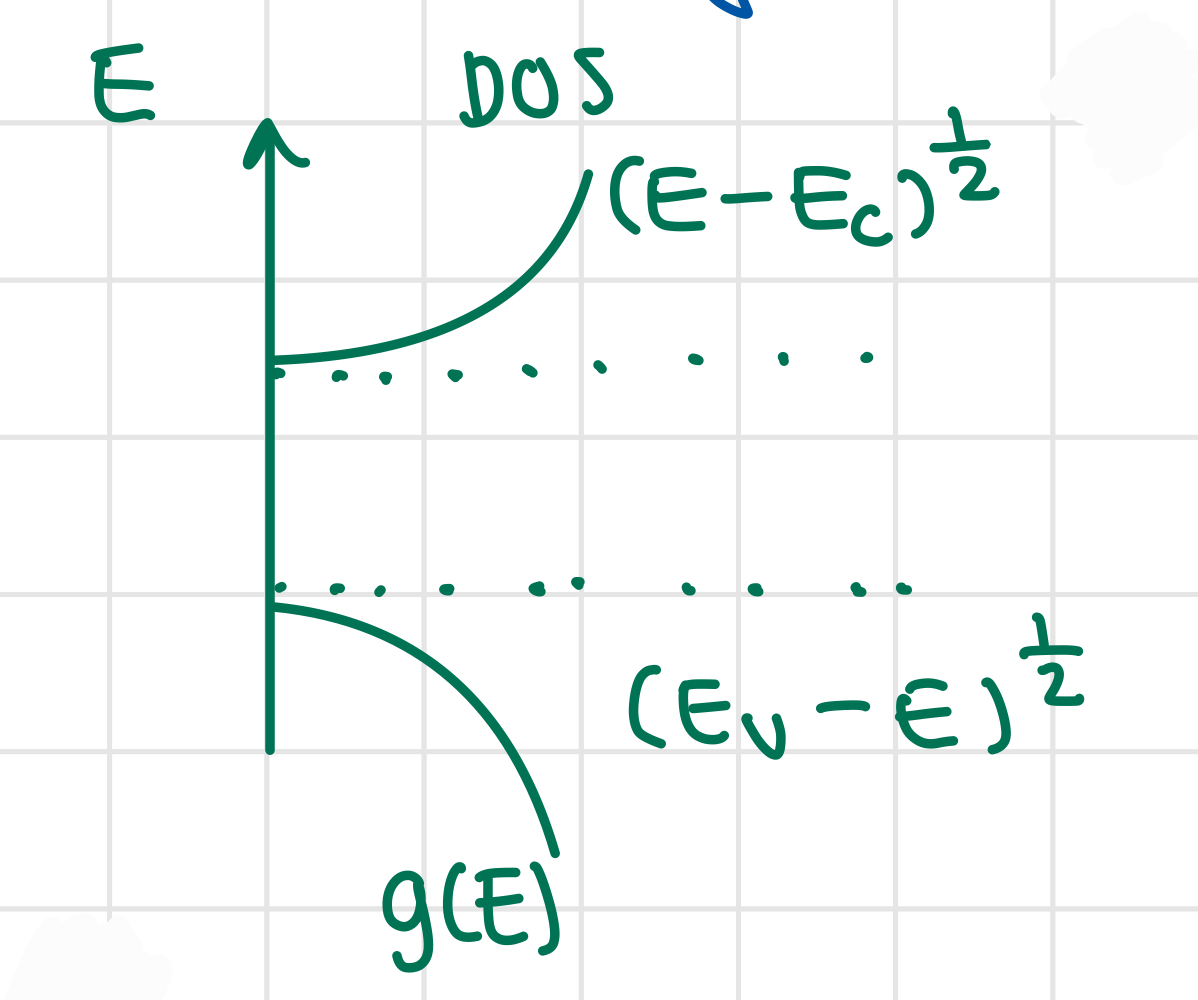 E
DOS
(E-E_c)^1/2
(E_v-E)^1/2
g(E)